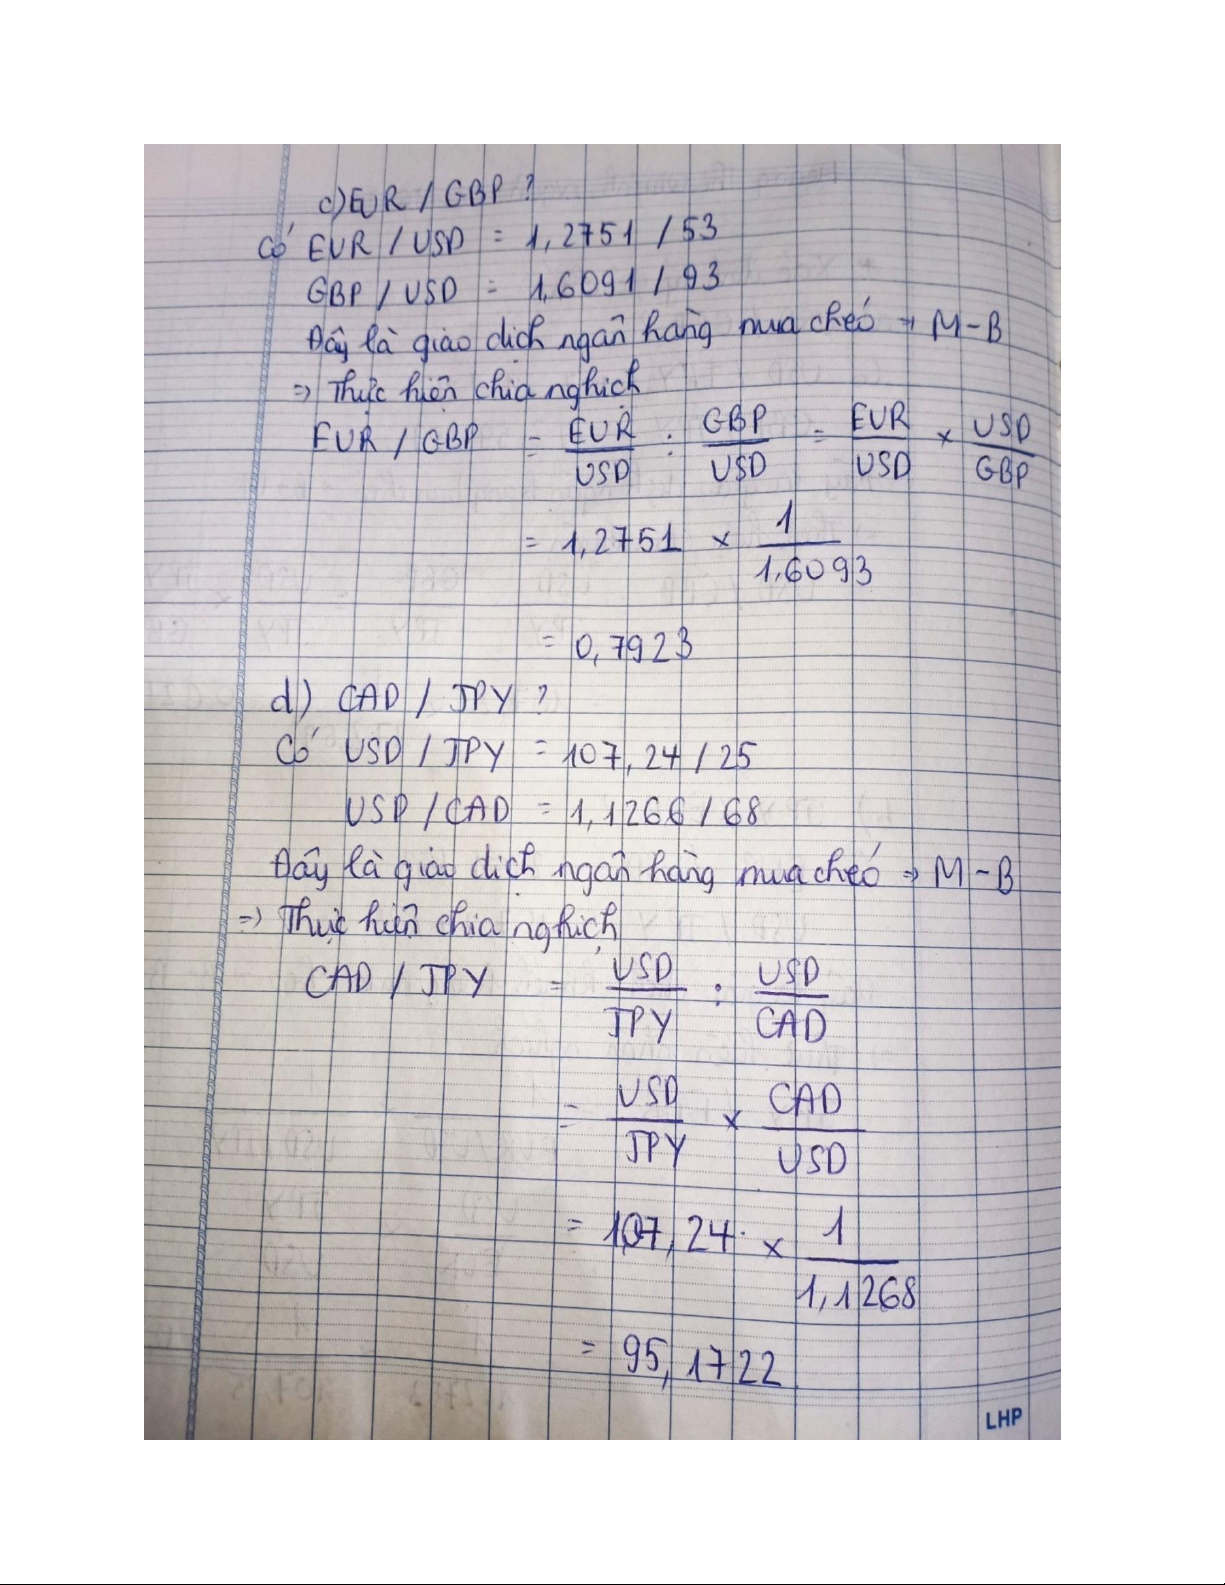 c) EUR / GBP ?
Có EUR / USD = 1,2751 / 53
GBP / USD = 1,6091 / 93
Đây là giao dịch ngân hàng mua chéo → M-B
=> Thực hiện chia nghịch
EUR / GBP = EUR/USD : GBP/USD = EUR/USD × USD/GBP
= 1,2751 × 1/1,6093
= 0,7923
d) CAD / JPY ?
Có USD / JPY = 107,24 / 25
USD / CAD = 1,1266 / 68
Đây là giao dịch ngân hàng mua chéo → M-B
=> Thực hiện chia nghịch
CAD / JPY = USD/JPY : USD/CAD
= USD/JPY × CAD/USD
= 107,24 × 1/1,1268
= 95,1722
LHP